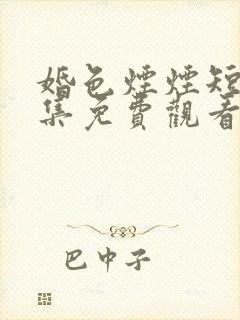 婚色煙煙短
集免費觀看
巴中子